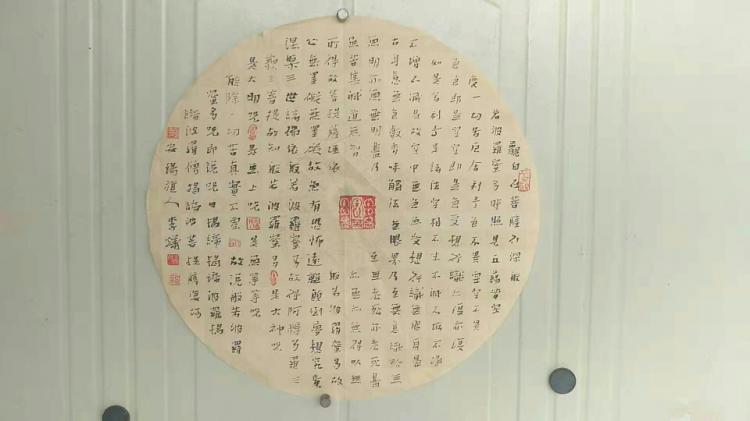 觀自在菩薩行深般
若波羅蜜多時照見五蘊皆空
度一切苦厄舍利子色不異空空不異
色色即是空空即是色受想行識亦復
如是舍利子是諸法空相不生不滅不垢不淨
不增不減是故空中無色無受想行識無眼耳鼻
舌身意無色聲香味觸法無眼界乃至無意識界無
無明亦無無明盡乃至無老死亦無老死盡
無苦集滅道無智亦無得以無
所得故菩提薩埵依般若波羅蜜多故
心無罣礙無罣礙故無有恐怖遠離顛倒夢想究竟
涅槃三世諸佛依般若波羅蜜多故得阿耨多羅三
藐三菩提故知般若波羅蜜多是大神咒
是大明咒是無上咒是無等等咒
能除一切苦真實不虛故說般若波羅
蜜多咒即說咒曰揭諦揭諦波羅揭
諦波羅僧揭諦菩提薩婆訶
道人李